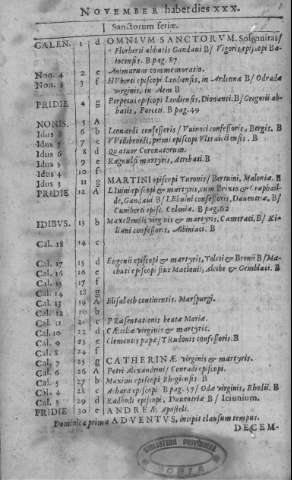 NOVEMBER habet dies XXX.
Sanctorum feriæ.
CALEN. 1 d OMNIUM SANCTORUM. Solennitas/
Florberti abbatis Gandavi B/ Vigoris episcopi Ba-
iocensis. B pag. 87
Non. 4 2 e Animarum commemoratio.
Non. 3 3 f Huberti episcopi Leodiensis, in Ardenna B/ Odrada
virginis, in Alem B
PRIDIE 4 g Perpetui episcopi Leodiensis, Dionanti. B/ Gregorii ab-
batis, Porceti. B pag. 49
NONIS. 5 A
Idus 8 6 b Leonardi confessoris/ Vuinoci confessoris, Bergis. B
Idus 7 7 c Vvillibrordi, primi episcopi Vltraiectensis. B
Idus 6 8 d Quatuor Coronatorum.
Idus 5 9 e Ragnulfi martyris, Atrebati. B
Idus 4 10 f
Idus 3 11 g MARTINI episcopi Turonis/ Bertuini, Maloniæ. B
PRIDIE 12 A Livini episcopi & martyris, cum Brixio & Craphail-
de, Gandavi B/ Lebuini confessoris, Daventriæ, B/
Cuniberti episc. Coloniæ. B pag. 62
IDIBUS. 13 b Maxellendis virginis & martyris, Cameraci, B/ Ki-
liani confessoris, Albiniaci. B
Cal. 18 14 c
Cal. 17 15 d Eugenii episcopi & martyris, Toleti & Bronii B/ Ma-
Cal. 16 16 e chuti episcopi sive Maclovii, Alethæ & Gemblaci. B
Cal. 15 17 f
Cal. 14 18 g
Cal. 13 19 A Elisabeth continentis. Marspurgi.
Cal. 12 20 b
Cal. 11 21 c PRæsentationis beatæ Mariæ.
Cal. 10 22 d CÆciliæ virginis & martyris.
Cal. 9 23 e Clementis papæ/ TRudonis confessoris. B
Cal. 8 24 f
Cal. 7 25 g CATHERINÆ virginis & martyris.
Cal. 6 26 A Petri Alexandrini/ Conradi episcopi.
Cal. 5 27 b Maximi episcopi Rhegiensis. B
Cal. 4 28 c episcopi B pag. 57/ Odæ virginis, Rhodii. B
Cal. 3 29 d Radbodi episcopi, Daventriæ B/ Ieiunium.
PRIDIE 30 e ANDREÆ Apostoli.
Dominica prima ADVENTUS, incipit clausum tempus.
DECEM-